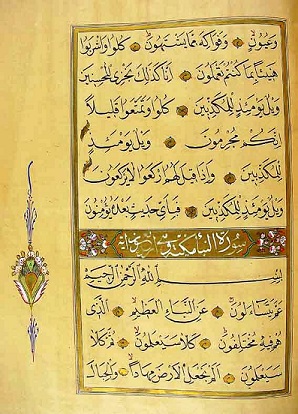 وَعُيُونٍ وَفَوَاكِهَ مِمَّا يَشْتَهُونَ كُلُوا وَاشْرَبُوا
هَنِيئًا بِمَا كُنْتُمْ تَعْمَلُونَ إِنَّا كَذَلِكَ نَجْزِي الْمُحْسِنِينَ
وَيْلٌ يَوْمَئِذٍ لِلْمُكَذِّبِينَ كُلُوا وَتَمَتَّعُوا قَلِيلًا
إِنَّكُمْ مُجْرِمُونَ وَيْلٌ يَوْمَئِذٍ
لِلْمُكَذِّبِينَ وَإِذَا قِيلَ لَهُمُ ارْكَعُوا لَا يَرْكَعُونَ
وَيْلٌ يَوْمَئِذٍ لِلْمُكَذِّبِينَ فَبِأَيِّ حَدِيثٍ بَعْدَهُ يُؤْمِنُونَ
سورة النبأ مكية وهي اربعون اية
بِسْمِ اللَّهِ الرَّحْمَنِ الرَّحِيمِ
عَمَّ يَتَسَاءَلُونَ عَنِ النَّبَإِ الْعَظِيمِ الَّذِي
هُمْ فِيهِ مُخْتَلِفُونَ كَلَّا سَيَعْلَمُونَ ثُمَّ كَلَّا
سَيَعْلَمُونَ أَلَمْ نَجْعَلِ الْأَرْضَ مِهَادًا وَالْجِبَالَ